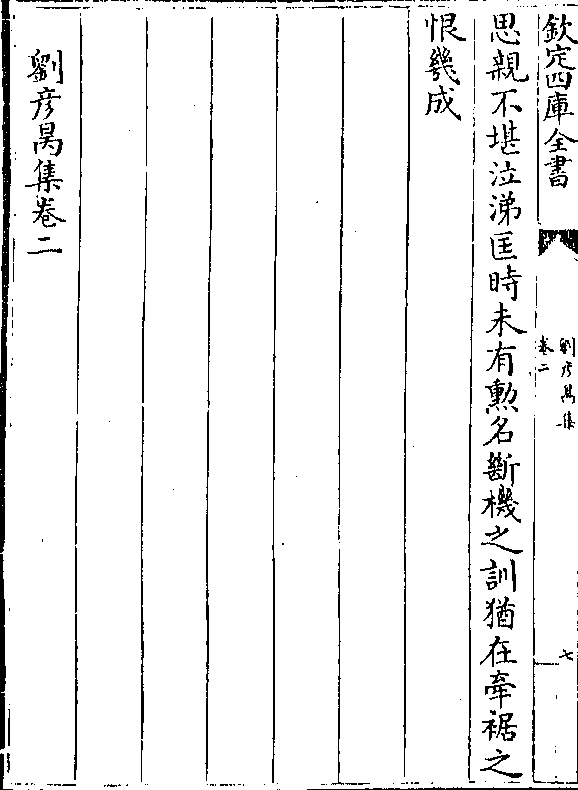 欽定四庫全書
劉彥昺集
卷二
七
思親不堪泣涕匡時未有勲名斷機之訓猶在牽裾之
恨幾成
劉彥昺集卷二